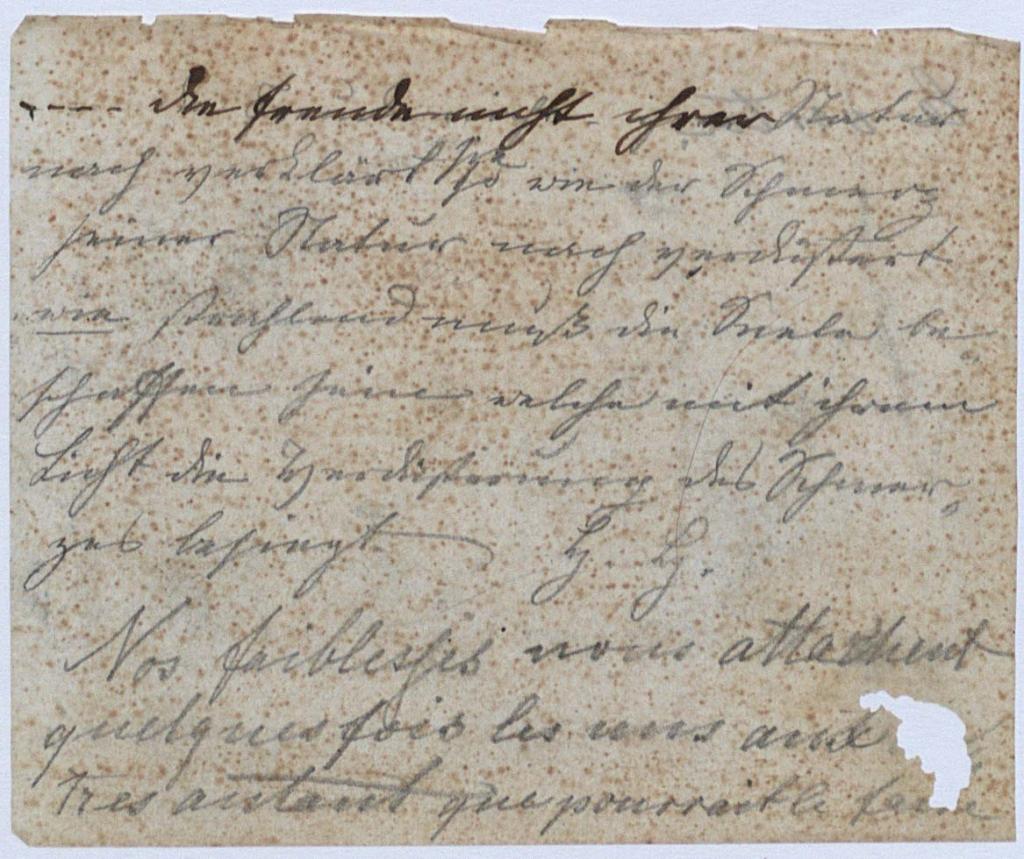 ---- die Freude nicht ihrer Natur
nach verklärt so wie der Schmerz
seiner Natur nach verdüstert
wie strahlend muß die Seele be
schaffen sein welche mit ihrem
Licht die Verdüsterung des Schmer,
zes besiegt H. H.
Nos faiblesses nous attachent
quelques fois les uns aux
tres autant que pourrait le faire